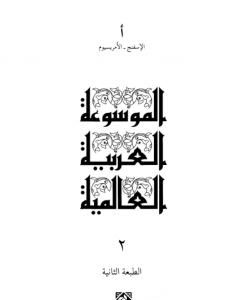 أ
الإسفنج - الأمريسيوم
الموسوعة
العربية
العالمية
٢
الطبعة الثانية